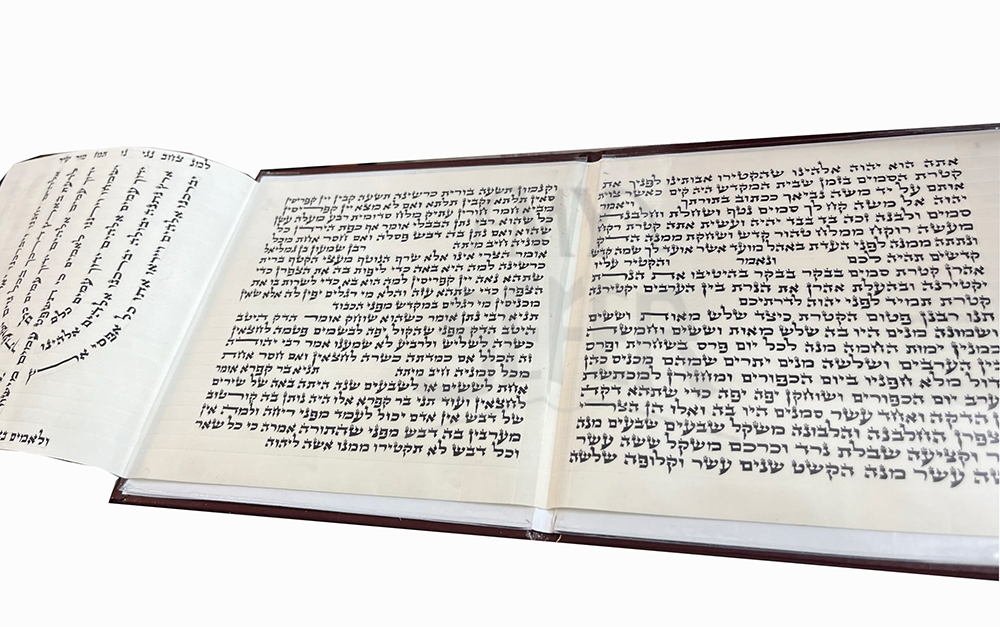 אתה הוא יהוה אלהינו שהקטירו אבותינו לפניך את
קטרת הסמים בזמן שבית המקדש היה קים כאשר צוית
אותם על יד משה נביאך ככתוב בתורתך ויאמר
יהוה אל משה קח לך סמים נטף ושחלת וחלבנה
סמים ולבנה זכה בד בבד יהיה ועשית אתה קטרת רקח
מעשה רוקח ממלח טהור קדש ושחקת ממנה הדק
ונתתה ממנה לפני העדת באהל מועד אשר אועד לך שמה קדש
קדשים תהיה לכם ונאמר והקטיר עליו
אהרן קטרת סמים בבקר בבקר בהיטיבו את הנרת
יקטירנה ובהעלת אהרן את הנרת בין הערבים יקטירנה
קטרת תמיד לפני יהוה לדרתיכם
תנו רבנן פטום הקטרת כיצד שלש מאות וששים
ושמונה מנים היו בה שלש מאות וששים וחמשה
כמנין ימות החמה מנה לכל יום פרס בשחרית ופרס
בין הערבים ושלשה מנים יתרים שמהם מכניס כהן
דול מלא חפניו ביום הכפורים ומחזירן למכתשת
ערב יום הכפורים ושוחקן יפה יפה כדי שתהא דקה
הדקה ואחד עשר סמנים היו בה ואלו הן הצרי
צפרן החלבנה והלבונה משקל שבעים שבעים מנה
ר וקציעה שבלת נרד וכרכם משקל ששה עשר
שה עשר מנה הקשט שנים עשר וקלופה שלשה
וקנמון תשעה בורית כרשינה תשעה קבין יין קפריסין
סאין תלתא וקבין תלתא ואם לא מצא יין קפריסין
מביא חמר חורין עתיק מלח סדומית רבע מעלה עשן
כל שהוא רבי נתן הבבלי אומר אף כפת הירדן כל
שהוא ואם נתן בה דבש פסלה ואם חסר אחת מכל
סמניה חיב מיתה רבן שמעון בן גמליאל
אומר הצרי אינו אלא שרף הנוטף מעצי הקטף ברית
כרשינה למה היא באה כדי ליפות בה את הצפרן כדי
שתהא נאה יין קפריסין למה הוא בא כדי לשרות בו את
הצפרן כדי שתהא עזה והלא מי רגלים יפין לה אלא שאין
מכניסין מי רגלים במקדש מפני הכבוד
תניא רבי נתן אומר כשהוא שוחק אומר הדק היטב
היטב הדק מפני שהקול יפה לבשמים פטמה לחצאין
כשרה לשליש ולרביע לא שמענו אמר רבי יהודה
זה הכלל אם כמדתה כשרה לחצאין ואם חסר אחת
מכל סמניה חיב מיתה תניא בר קפרא אומר
אחת לששים או לשבעים שנה היתה באה של שירים
לחצאין ועוד תני בר קפרא אלו היה נותן בה קורטוב
של דבש אין אדם יכול לעמד מפני ריחה ולמה אין
מערבין בה דבש מפני שהתורה אמרה כי כל שאר
וכל דבש לא תקטירו ממנו אשה ליהוה
יברכנו אלהים וייראו אותו כל אפסי ארץ
ארץ נתנה יבולה יברכנו אלהים אלהינו
יודוך עמים אלהים יודוך עמים כלם
ולאמים